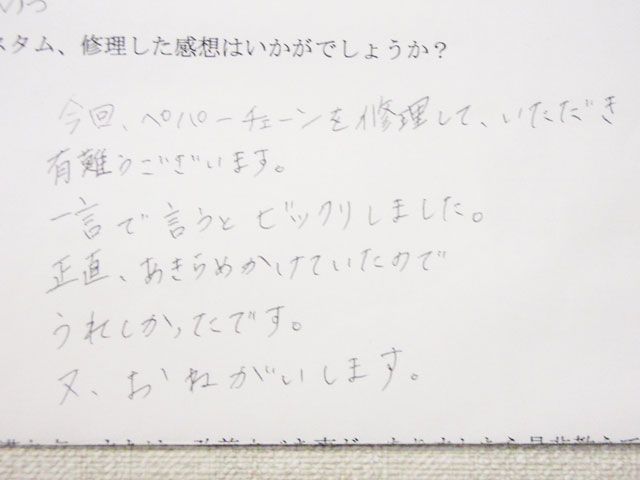 スタム、修理した感想はいかがでしょうか？
今回、ペパーチェーンを修理して、いただき
有難うございます。
一言で言うとビックリしました。
正直、あきらめかけていたので
うれしかったです。
又、おねがいします。